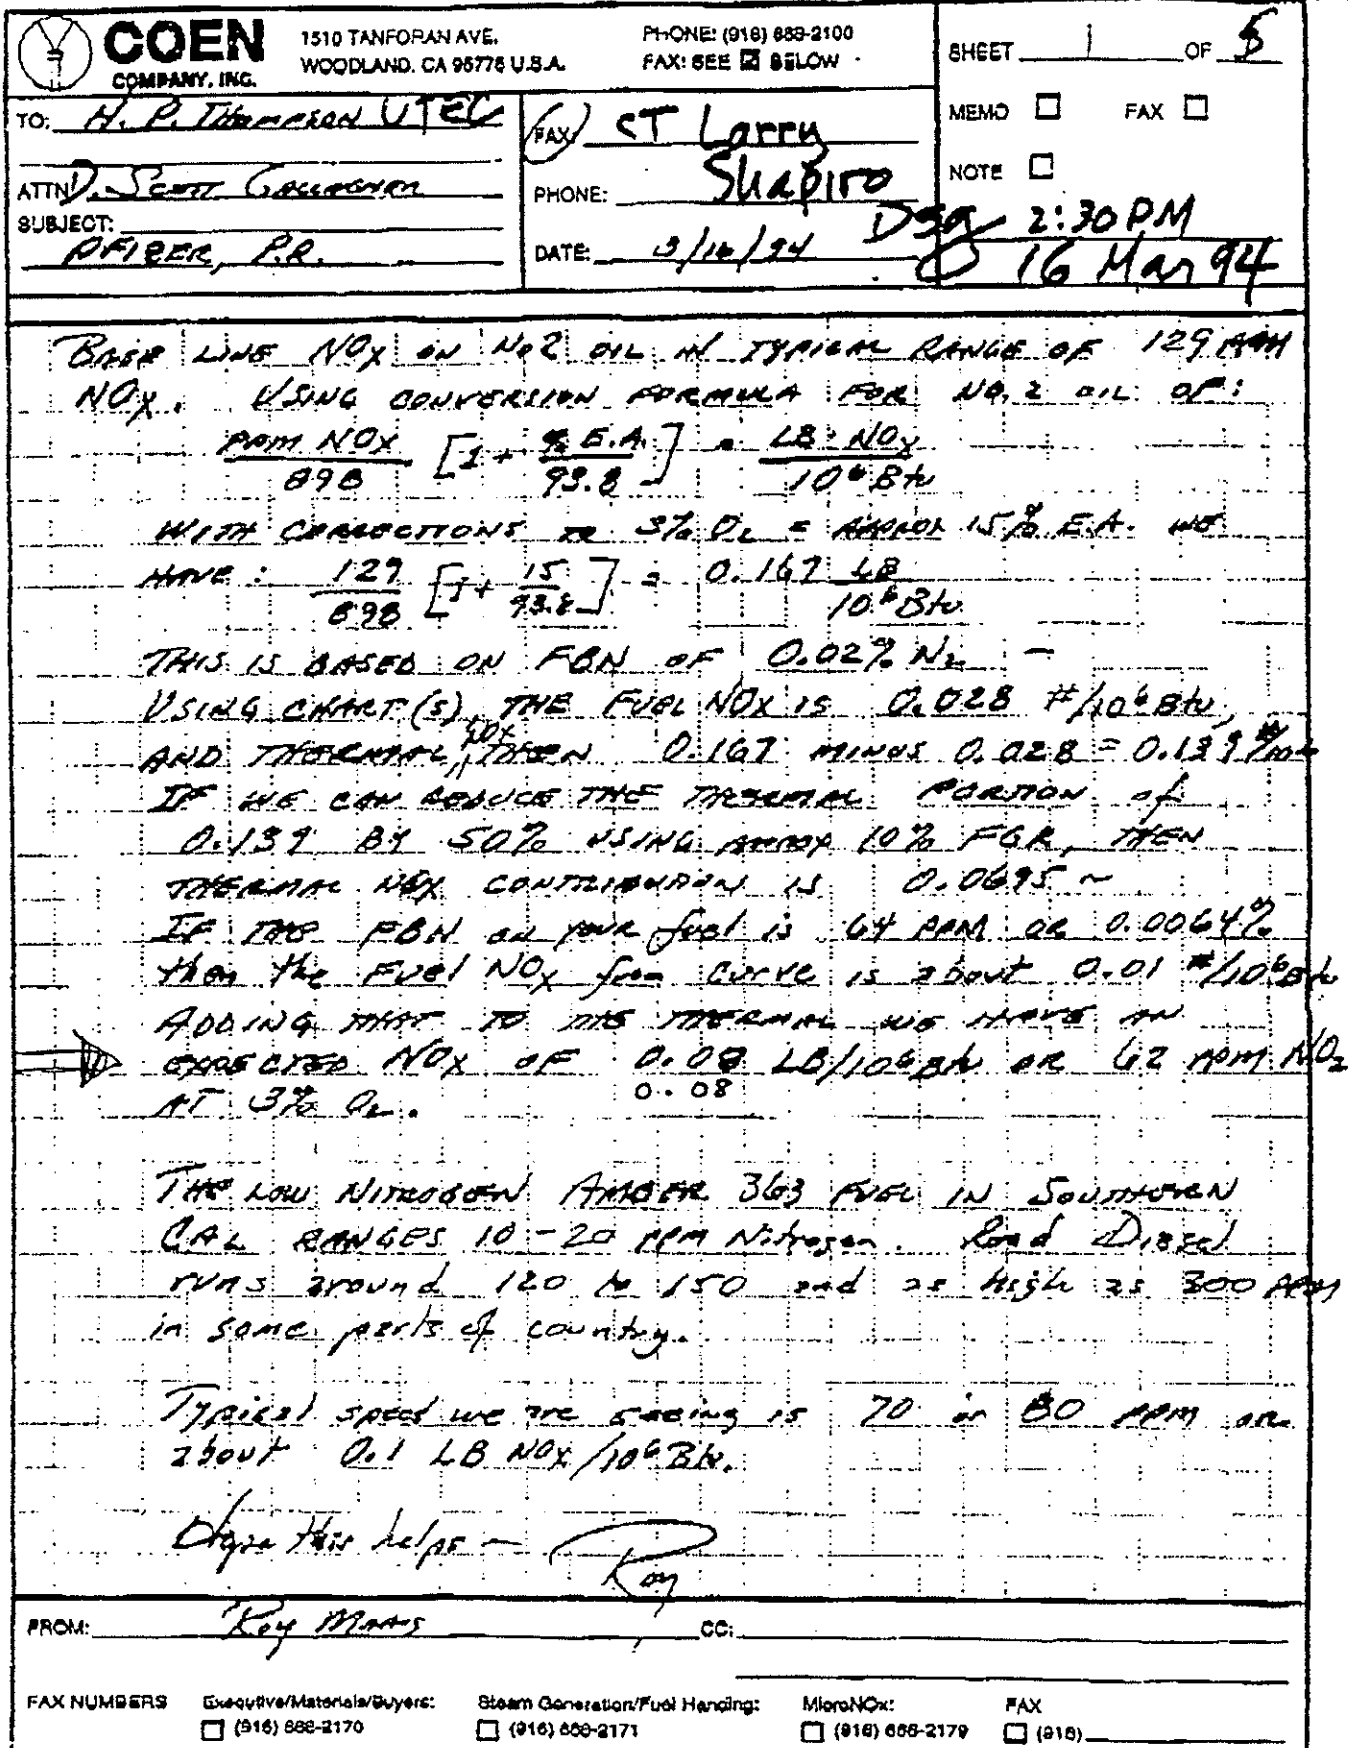 COEN
COMPANY, INC.
1510 TANFORAN AVE.
WOODLAND, CA 95776 U.S.A.
PHONE: (916) 668-2100
FAX: SEE ☑ BELOW
SHEET 1 OF 5
TO: H. P. Thompson UTEC
FAX CT Larry
Shapiro
MEMO ☐ FAX ☐
NOTE ☐
ATTN D. Scott
PHONE:
DSG 2:30 PM
16 Mar 94
SUBJECT:
PFIZER, P.R.
DATE: 3/16/94
BASE LINE NOx ON No2 OIL IN TYPICAL RANGE OF 129 PPM
NOx. USING CONVERSION FORMULA FOR NO. 2 OIL OF:
PPM NOx / 898 [1 + % E.A. / 93.8] = LB NOx / 10⁶ Btu
WITH CORRECTIONS TO 3% O2 = APPROX 15% E.A. WE
HAVE: 129 / 898 [1 + 15 / 93.8] = 0.167 LB / 10⁶ Btu
THIS IS BASED ON FBN OF 0.02% N2 -
USING CHART(S), THE FUEL NOx IS 0.028 #/10⁶ Btu,
AND THERMAL NOx, THEN 0.167 MINUS 0.028 = 0.139 #/10⁶
IF WE CAN REDUCE THE THERMAL PORTION of
0.139 BY 50% USING APPROX 10% FGR, THEN
THERMAL NOx CONTRIBUTION IS 0.0695 ~
IF THE FBN on your fuel is 64 PPM OR 0.0064%
then the Fuel NOx from curve is about 0.01 #/10⁶ Btu
ADDING THAT TO THE THERMAL WE HAVE AN
EXPECTED NOx OF 0.08 LB/10⁶ Btu OR 62 PPM NO2
0.08
AT 3% O2.
THE LOW NITROGEN AMBER 363 FUEL IN SOUTHERN
CAL RANGES 10-20 PPM Nitrogen. Road Diesel
runs around 120 to 150 and as high as 300 PPM
in some parts of country.
Typical spec'd we are seeing is 70 or 80 PPM or
about 0.1 LB NOx/10⁶ Btu.
this helps ~ Roy
FROM: Roy Maas CC:
FAX NUMBERS
Executive/Materials/Buyers:
☐ (916) 668-2170
Steam Generation/Fuel Handing:
☐ (916) 668-2171
MicroNOx:
☐ (916) 668-2179
FAX
☐ (916)